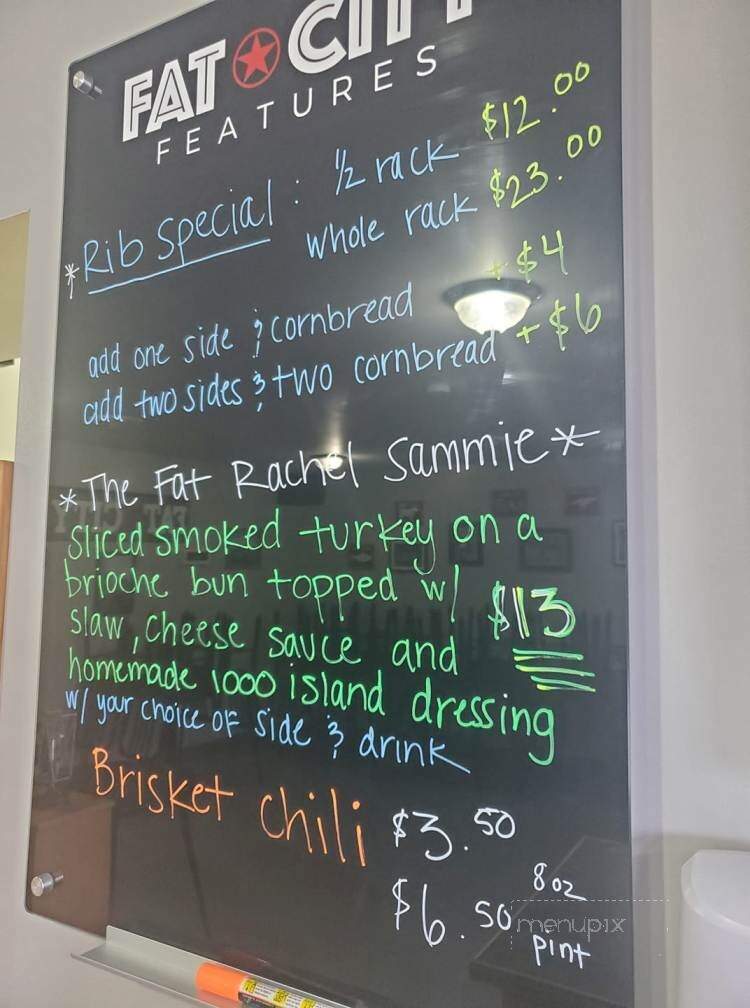 FAT CITY
FEATURES
*Rib Special: 1/2 rack $12.00
whole rack $23.00
add one side & cornbread + $4
add two sides & two cornbread + $6
*The Fat Rachel Sammie*
Sliced smoked turkey on a
brioche bun topped w/
slaw, cheese sauce and $13
homemade 1000 island dressing
w/ your choice of side & drink
Brisket Chili $3.50
8oz
$6.50
pint
menupix